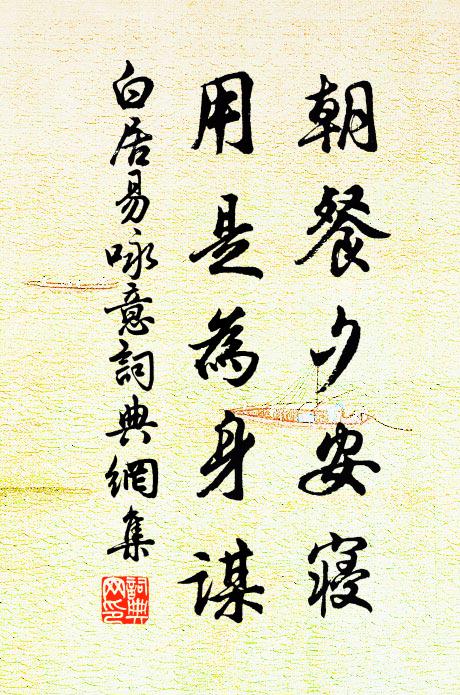 朝餐夕安寢
用是為身謀
白居易咏意詞典網集
詞典網印